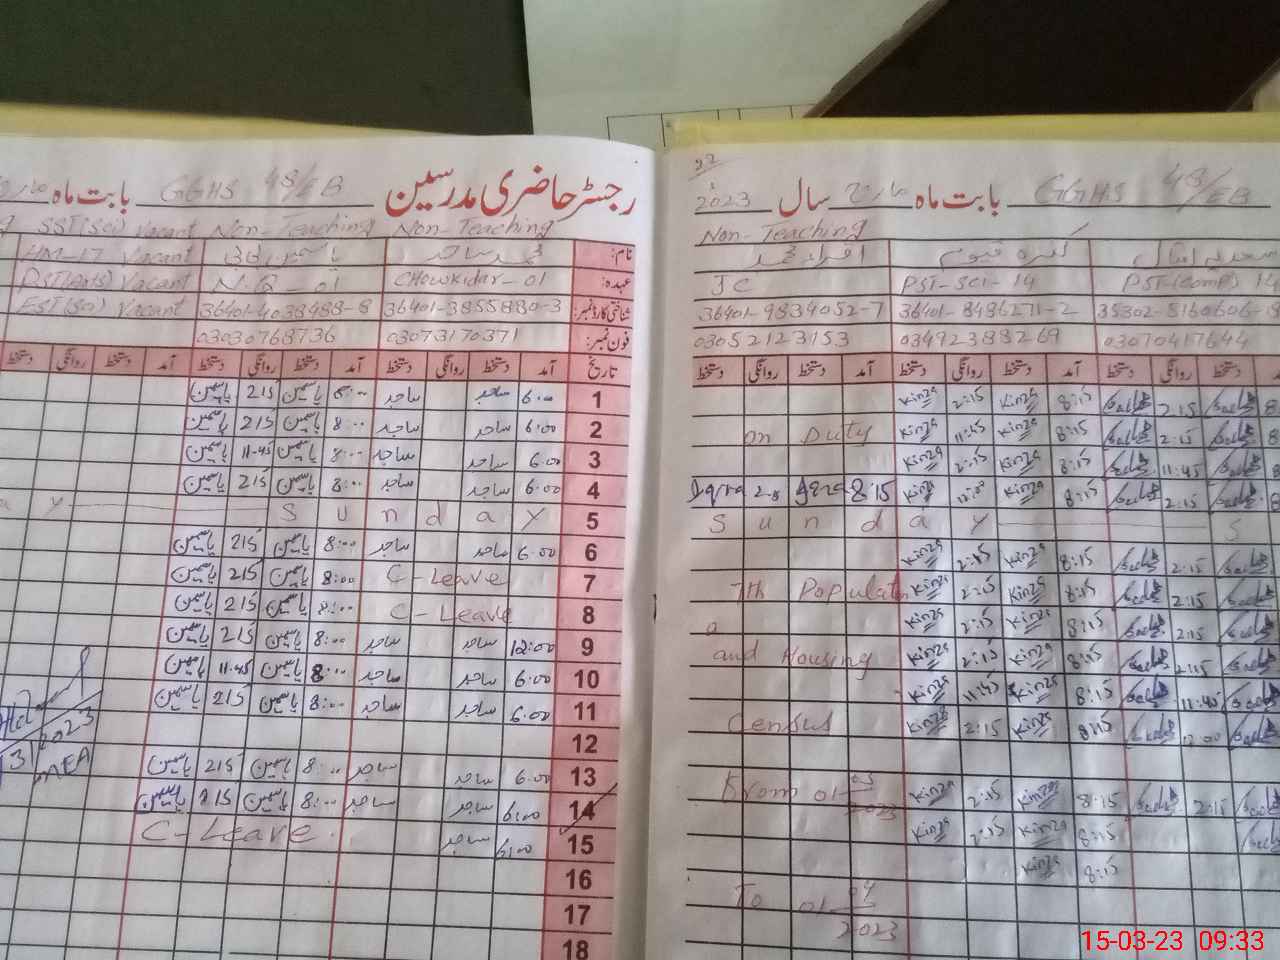 رجسٹر حاضری مدرسین GGHS 48/EB بابت ماہ
SST(Sci) Vacant Non-Teaching Non-Teaching
نام: محمد ساجد
HM-17 Vacant
عہدہ: CHowkidar-01 N.Q-01
شناختی کارڈ نمبر: 36401-3855880-3 36401-4038488-8
EST(Sci) Vacant
فون نمبر: 03073170371 03030768736
تاریخ آمد دستخط روانگی دستخط آمد دستخط روانگی دستخط آمد دستخط روانگی دستخط
1 6:00 ساجد ساجد 8:00 یاسمین 215 یاسمین
2 6:00 ساجد ساجد 8:00 یاسمین 215 یاسمین
3 6:00 ساجد ساجد 8:00 یاسمین 11:45 یاسمین
4 6:00 ساجد ساجد 8:00 یاسمین 215 یاسمین
5 Sunday
6 6:00 ساجد ساجد 8:00 یاسمین 215 یاسمین
7 C-Leave 8:00 یاسمین 215 یاسمین
8 C-Leave 8:00 یاسمین 215 یاسمین
9 12:00 ساجد ساجد 8:00 یاسمین 215 یاسمین
10 6:00 ساجد ساجد 8:00 یاسمین 11:45 یاسمین
11 6:00 ساجد ساجد 8:00 یاسمین 215 یاسمین
12
13 6:00 ساجد ساجد 8:00 یاسمین 215 یاسمین
14 6:00 ساجد ساجد 8:00 یاسمین 215 یاسمین
15 6:00 ساجد C-Leave
16
17
18
2023
MEA
GGHS 48/EB بابت ماہ مارچ سال 2023
Non-Teaching
کنزہ قیوم اقراء محمد
PST(Comp) 14 PST-Sci-14 JC
36401-8486271-2 36401-9834052-7
03070417644 03492388269 03052123153
آمد دستخط روانگی دستخط آمد دستخط روانگی دستخط آمد دستخط روانگی دستخط
Kinza 2:15 Kinza 8:15 Sadia 2:15 Sadia
on Duty Kinza 11:45 Kinza 8:15 Sadia 2:15 Sadia
Kinza 2:15 Kinza 8:15 Sadia 11:45 Sadia
Iqra Iqra 8:15 Kinza Kinza 8:15 Sadia 2:15 Sadia
Sunday S
Kinza 2:15 Kinza 8:15 Sadia 2:15 Sadia
7th Population Kinza 2:15 Kinza 8:15 Sadia 2:15 Sadia
Kinza 2:15 Kinza 8:15 Sadia 2:15 Sadia
and Housing Kinza 2:15 Kinza 8:15 Sadia 2:15 Sadia
Kinza 11:45 Kinza 8:15 Sadia 11:45 Sadia
Census Kinza 2:15 Kinza 8:15 Sadia 12:00 Sadia
From 01 03 2023 Kinza 2:15 Kinza 8:15 Sadia 2:15 Sadia
Kinza 2:15 Kinza 8:15 Sadia
Kinza 8:15
To 01 04 2023
15-03-23 09:33